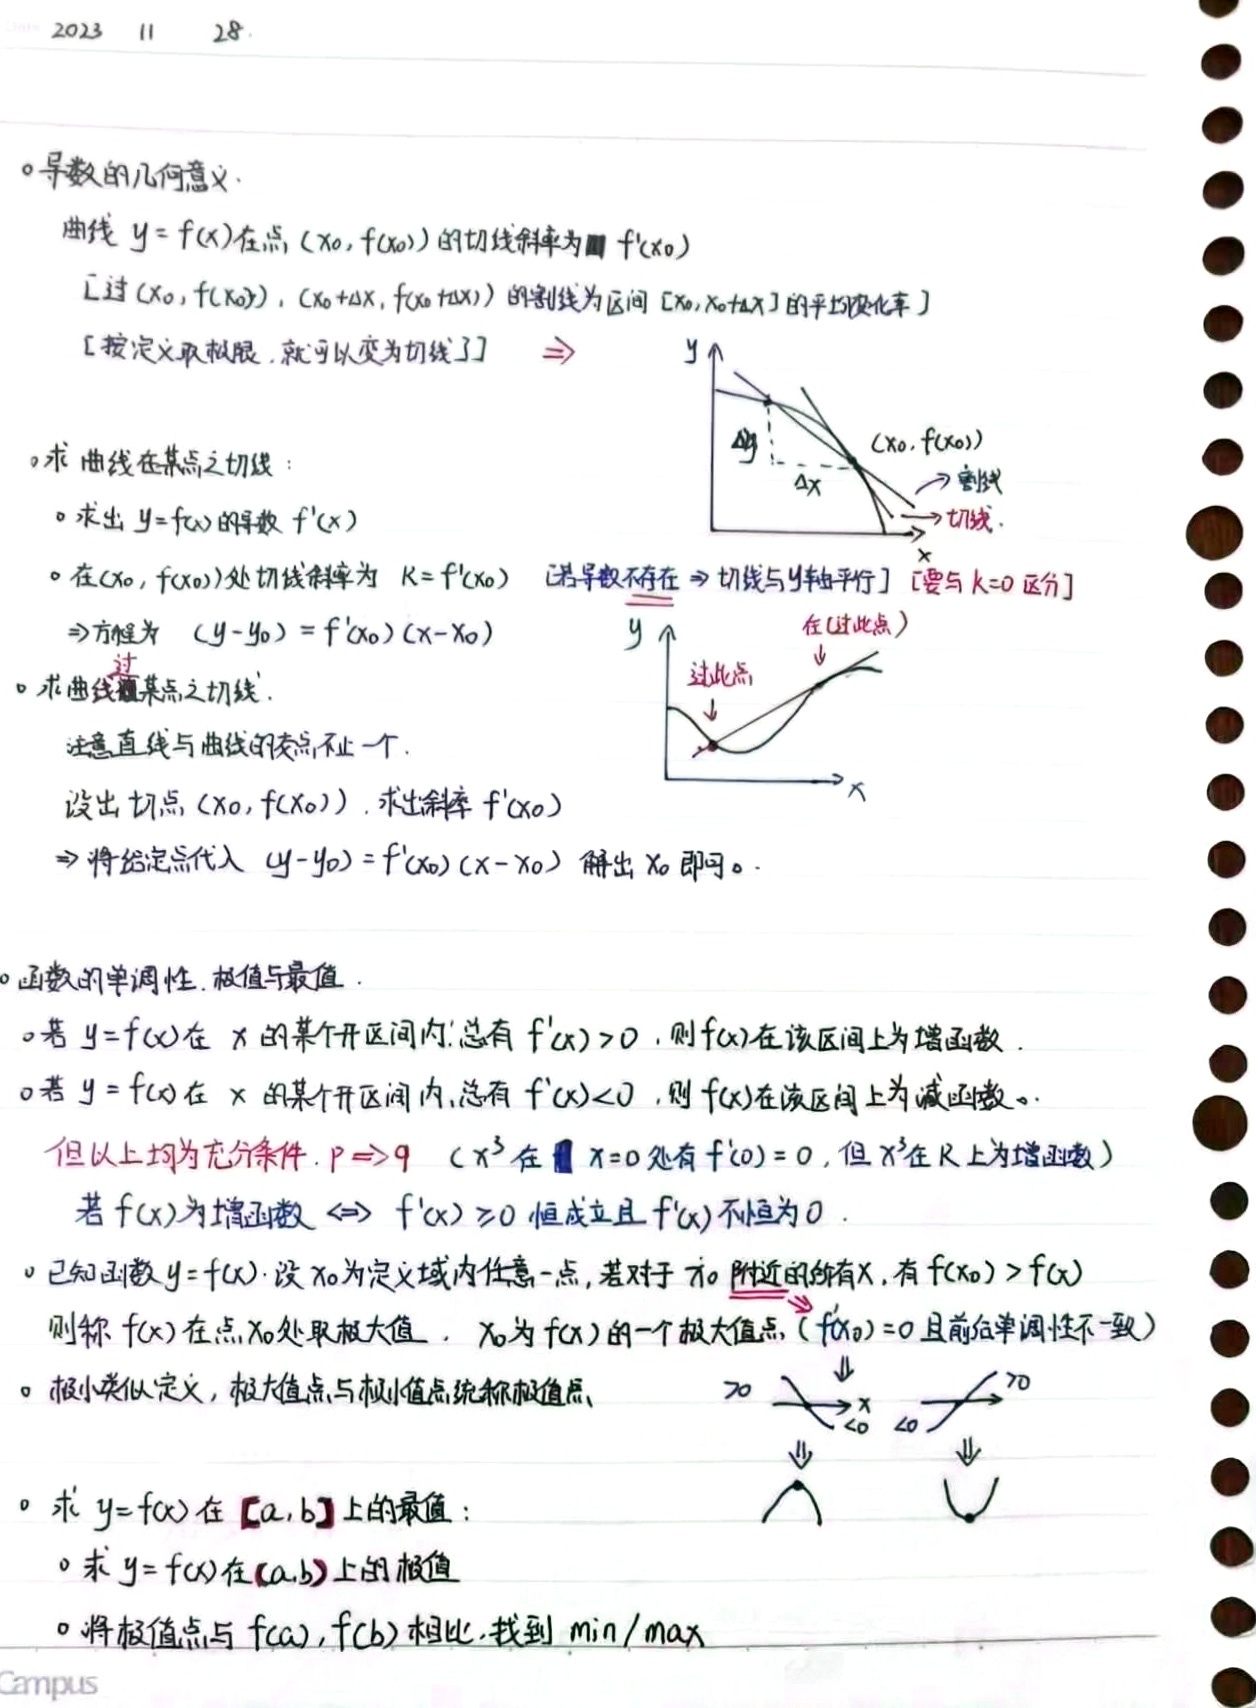 2023 11 28
导数的几何意义.
曲线 y = f(x)在点 (x₀, f(x₀)) 的切线斜率为 f'(x₀)
[过 (x₀, f(x₀)), (x₀+Δx, f(x₀+Δx)) 的割线为区间 [x₀, x₀+Δx] 的平均变化率]
[按定义取极限, 就可以变为切线了] ⇒
y
Δy
Δx
(x₀, f(x₀))
→ 割线
→ 切线.
x
求曲线在某点之切线:
求出 y=f(x) 的导数 f'(x)
在(x₀, f(x₀))处切线斜率为 K = f'(x₀) [若导数不存在 ⇒ 切线与y轴平行] [要与 k=0 区分]
⇒方程为 (y-y₀) = f'(x₀) (x-x₀)
y
在(过此点)
过此点
x
求曲线过某点之切线.
注意直线与曲线的交点不止一个.
设出切点 (x₀, f(x₀)). 求出斜率 f'(x₀)
⇒ 将给定点代入 (y-y₀) = f'(x₀) (x-x₀) 解出 x₀ 即可。
函数的单调性. 极值与最值.
若 y=f(x)在 x 的某个开区间内, 总有 f'(x) > 0, 则f(x)在该区间上为增函数.
若 y = f(x) 在 x 的某个开区间内, 总有 f'(x)<0, 则 f(x)在该区间上为减函数。
但以上均为充分条件. p ⇒ q (x³ 在 x=0 处有 f'(0) = 0, 但 x³在 R 上为增函数)
若 f(x)为增函数 ⇔ f'(x) ≥ 0 恒成立且 f'(x) 不恒为 0.
已知函数 y=f(x). 设 x₀为定义域内任意一点, 若对于 x₀ 附近的所有x, 有 f(x₀) > f(x)
则称 f(x) 在点 x₀ 处取极大值. x₀为 f(x) 的一个极大值点, (f'(x₀) = 0 且前后单调性不一致)
极小类似定义, 极大值点与极小值点统称极值点.
>0 x <0 <0 >0
求 y=f(x) 在 [a,b] 上的最值:
求 y = f(x)在(a,b)上的极值
将极值点与 f(a), f(b) 相比, 找到 min/max
Campus